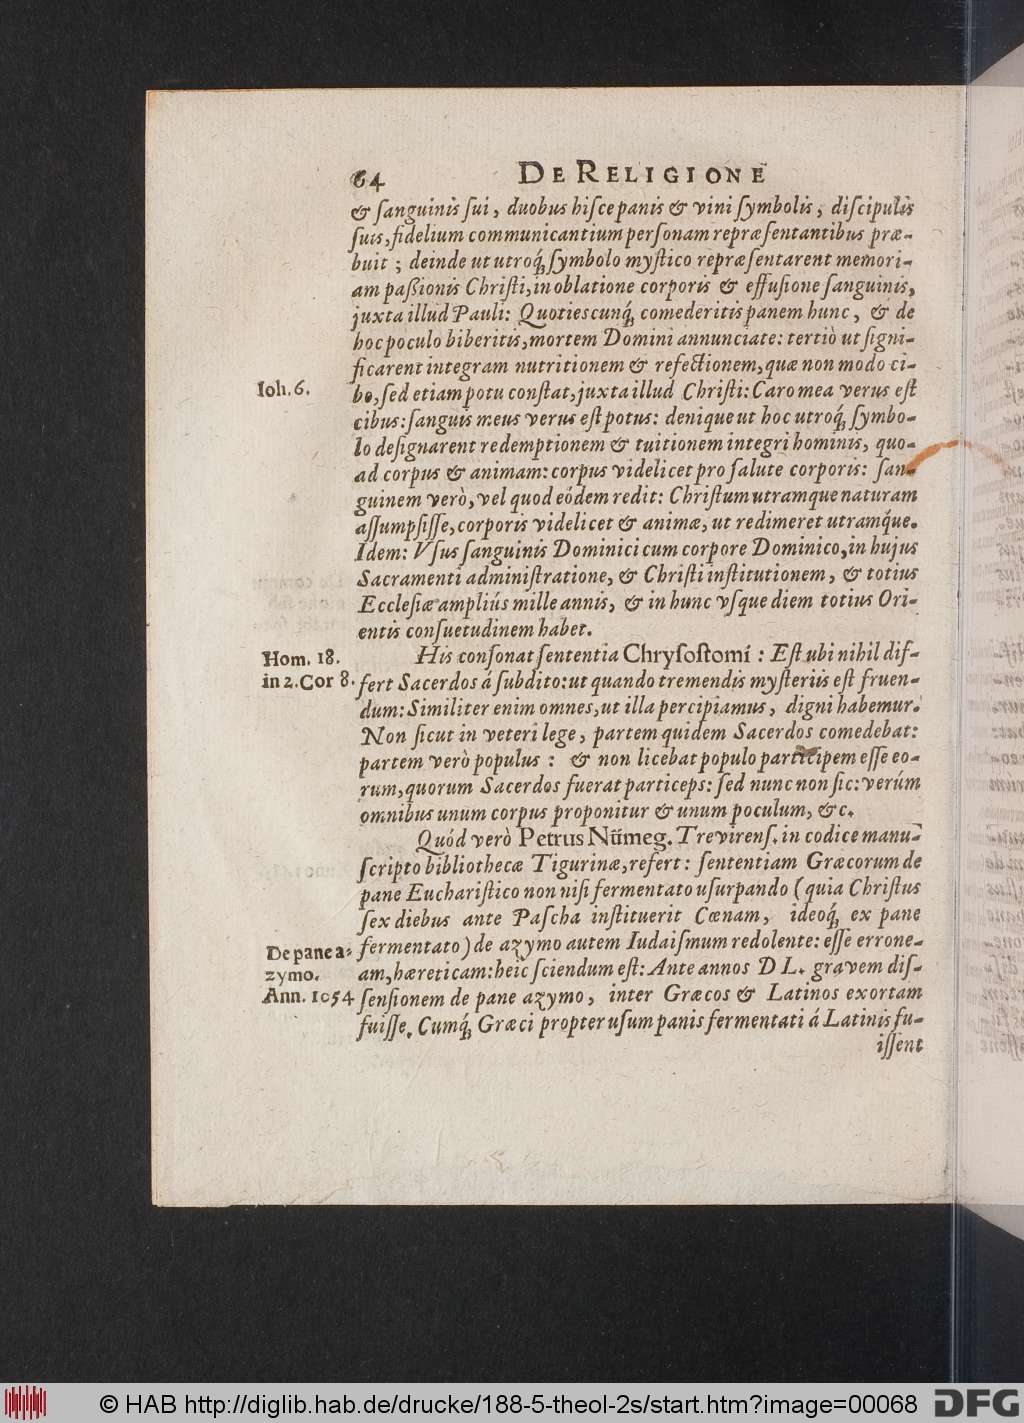 64 DE RELIGIONE
& ſanguinis ſui, duobus hiſce panis & vini ſymbolis, diſcipulis
ſuis, fidelium communicantium perſonam repræſentantibus præ-
buit; deinde ut utroq́ꝫ ſymbolo myſtico repræſentarent memori-
am paßionis Chriſti, in oblatione corporis & effuſione ſanguinis,
juxta illud Pauli: Quotiescunq́ꝫ comederitis panem hunc, & de
hoc poculo biberitis, mortem Domini annunciate: tertiò ut ſigni-
ficarent integram nutritionem & refectionem, quæ non modo ci-
Ioh. 6.
bo, ſed etiam potu conſtat, juxta illud Chriſti: Caro mea verus eſt
cibus: ſanguis meus verus eſt potus: denique ut hoc utroq́ꝫ ſymbo-
lo deſignarent redemptionem & tuitionem integri hominis, quo-
ad corpus & animam: corpus videlicet pro ſalute corporis: ſan-
guinem verò, vel quod eódem redit: Chriſtum utramque naturam
aſſumpſiſſe, corporis videlicet & animæ, ut redimeret utramq́ue.
Idem: Vſus ſanguinis Dominici cum corpore Dominico, in hujus
Sacramenti adminiſtratione, & Chriſti inſtitutionem, & totius
Eccleſiæ ampliús mille annis, & in hunc vſque diem totius Ori-
entis conſuetudinem habet.
Hom. 18.
His conſonat ſententia Chryſoſtomi: Eſt ubi nihil dif-
in 2. Cor 8.
fert Sacerdos á ſubdito: ut quando tremendis myſteriis eſt fruen-
dum: Similiter enim omnes, ut illa percipiamus, digni habemur.
Non ſicut in veteri lege, partem quidem Sacerdos comedebat:
partem verò populus: & non licebat populo participem eſſe eo-
rum, quorum Sacerdos fuerat particeps: ſed nunc non ſic: verúm
omnibus unum corpus proponitur & unum poculum, &c.
Quód verò Petrus Nūmeg. Trevirenſ. in codice manu-
ſcripto bibliothecæ Tigurinæ, refert: ſententiam Græcorum de
pane Euchariſtico non niſi fermentato uſurpando (quia Chriſtus
ſex diebus ante Paſcha inſtituerit Cœnam, ideoq́ꝫ ex pane
De pane a-
fermentato) de azymo autem Iudaiſmum redolente: eſſe errone-
zymo.
am, hæreticam: heic ſciendum eſt: Ante annos D L. gravem diſ-
Ann. 1054
ſenſionem de pane azymo, inter Græcos & Latinos exortam
fuiſſe. Cumq́ꝫ Græci propter uſum panis fermentati á Latinis fu-
iſſent
© HAB http://diglib.hab.de/drucke/188-5-theol-2s/start.htm?image=00068
DFG